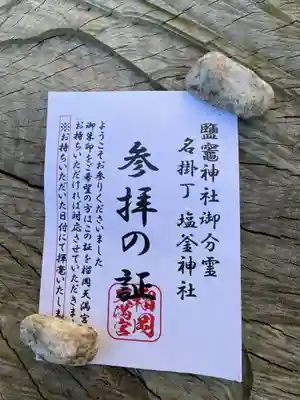 鹽竈神社御分霊
名掛丁 塩釜神社
参拝の証
ようこそお参りくださいました
御朱印をご希望の方はこの証を榴岡天満宮
お持ちいただければ対応させていただきま
※お持ちいただいた日付にて拝
榴岡
満宮